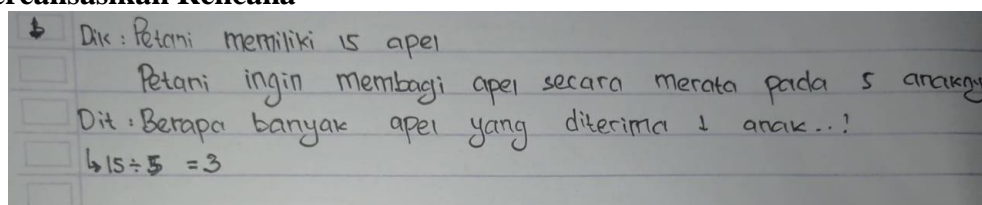 b Dik : Petani memiliki 15 apel
Petani ingin membagi apel secara merata pada 5 anakny
Dit : Berapa banyak apel yang diterima 1 anak..!
↳ 15 ÷ 5 = 3